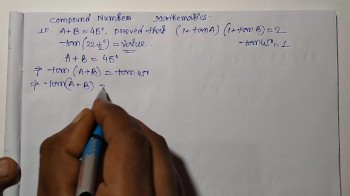 Compound Number Mathematics
If A+B = 45°, proved that (1+tanA) (1+tanB) = 2
tan(22½°) = value. tan45° = 1
A+B = 45°
⇒ tan (A+B) = tan 45°
⇒ tan(A+B) =